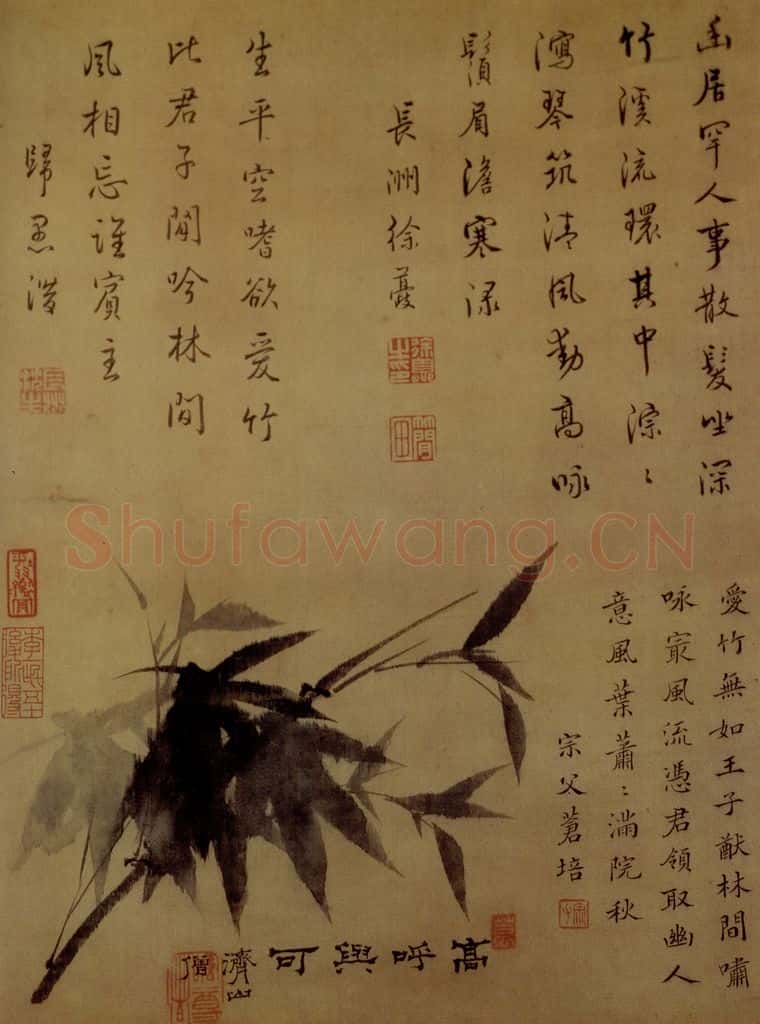 幽居罕人事散髮坐深
竹溪流環其中淙〻
瀉琴筑清風動高咏
鬚眉澹寒渌
長洲徐葑
生平空嗜欲愛竹
此君子閒吟林間
風相忘誰賓主
歸
Shufawang.CN
愛竹無如王子猷林間嘯
咏冣風流憑君領取幽人
意風葉蕭〻滿院秋
宗父蒼培
高呼與可
濟山僧